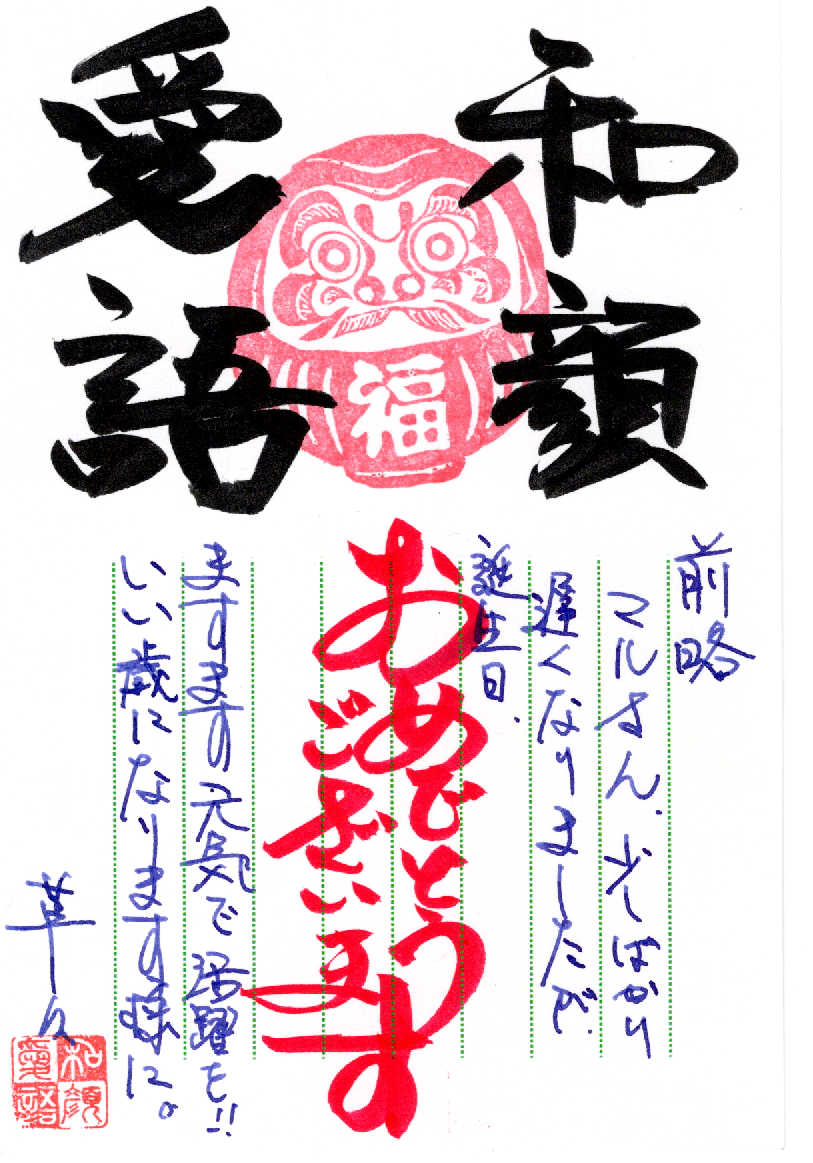 和顔
愛語
福
前略
マルさん、少しばかり
遅くなりましたが、
誕生日、
おめでとう
ございます
ますます元気で活躍を!!
いい歳になります様に。
草々
和顔
愛語